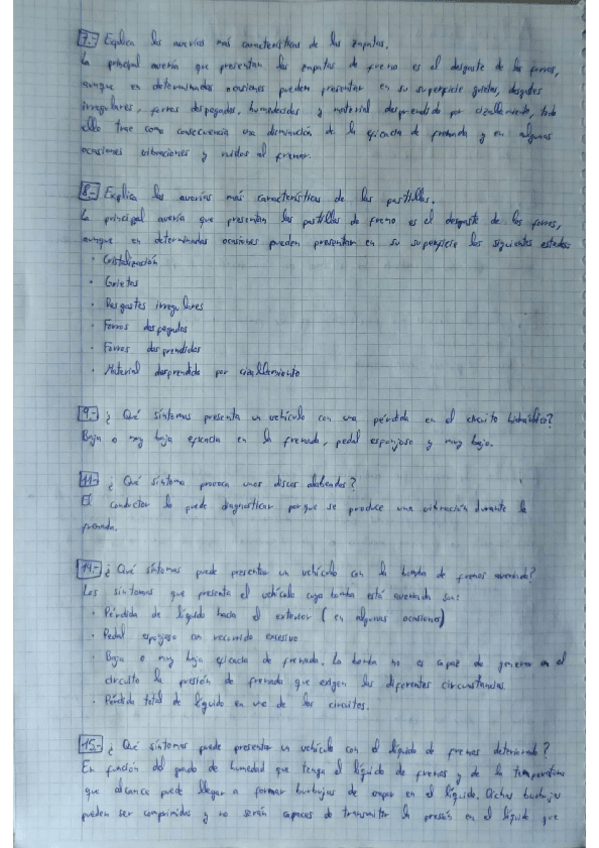 7.- Explica las averías más características de las zapatas.
La principal avería que presentan las zapatas de freno es el desgaste de los forros,
aunque en determinadas ocasiones pueden presentar en su superficie grietas, desgastes
irregulares, forros despegados, humedecidos y material desprendido por cizallamiento, todo
ello trae como consecuencia una disminución de la eficacia de frenada y en algunas
ocasiones vibraciones y ruidos al frenar.
8.- Explica las averías más características de las pastillas.
La principal avería que presentan las pastillas de freno es el desgaste de los forros,
aunque en determinadas ocasiones pueden presentar en su superficie los siguientes estados
· Cristalización
· Grietas
· Desgastes irregulares
· Forros despegados
· Forros desprendidos
· Material desprendido por cizallamiento
9.- ¿Qué síntomas presenta un vehículo con una pérdida en el circuito hidráulico?
Baja o muy baja eficacia en la frenada, pedal esponjoso y muy bajo.
11.- ¿Qué síntoma provoca unos discos alabeados?
El conductor lo puede diagnosticar porque se produce una vibración durante la
frenada.
14.- ¿Qué síntomas puede presentar un vehículo con la bomba de frenos averiada?
Los síntomas que presenta el vehículo cuya bomba está averiada son:
· Pérdida de líquido hacia el exterior (en algunas ocasiones)
· Pedal esponjoso con recorrido excesivo
· Baja o muy baja eficacia de frenada. La bomba no es capaz de generar en el
circuito la presión de frenada que exigen las diferentes circunstancias.
· Pérdida total de líquido en uno de los circuitos.
15.- ¿Qué síntomas puede presentar un vehículo con el líquido de frenos deteriorado?
En función del grado de humedad que tenga el líquido de frenos y de la temperatura
que alcance puede llegar a formar burbujas de vapor en el líquido. Dichas burbujas
pueden ser comprimidas y no serán capaces de transmitir la presión en el líquido que